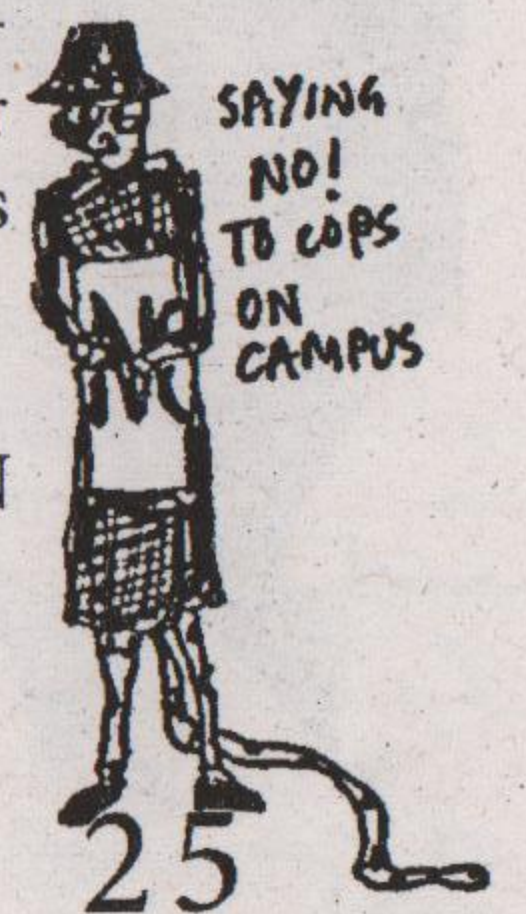 SAYING
NO!
TO COPS
ON
CAMPUS
NO
25